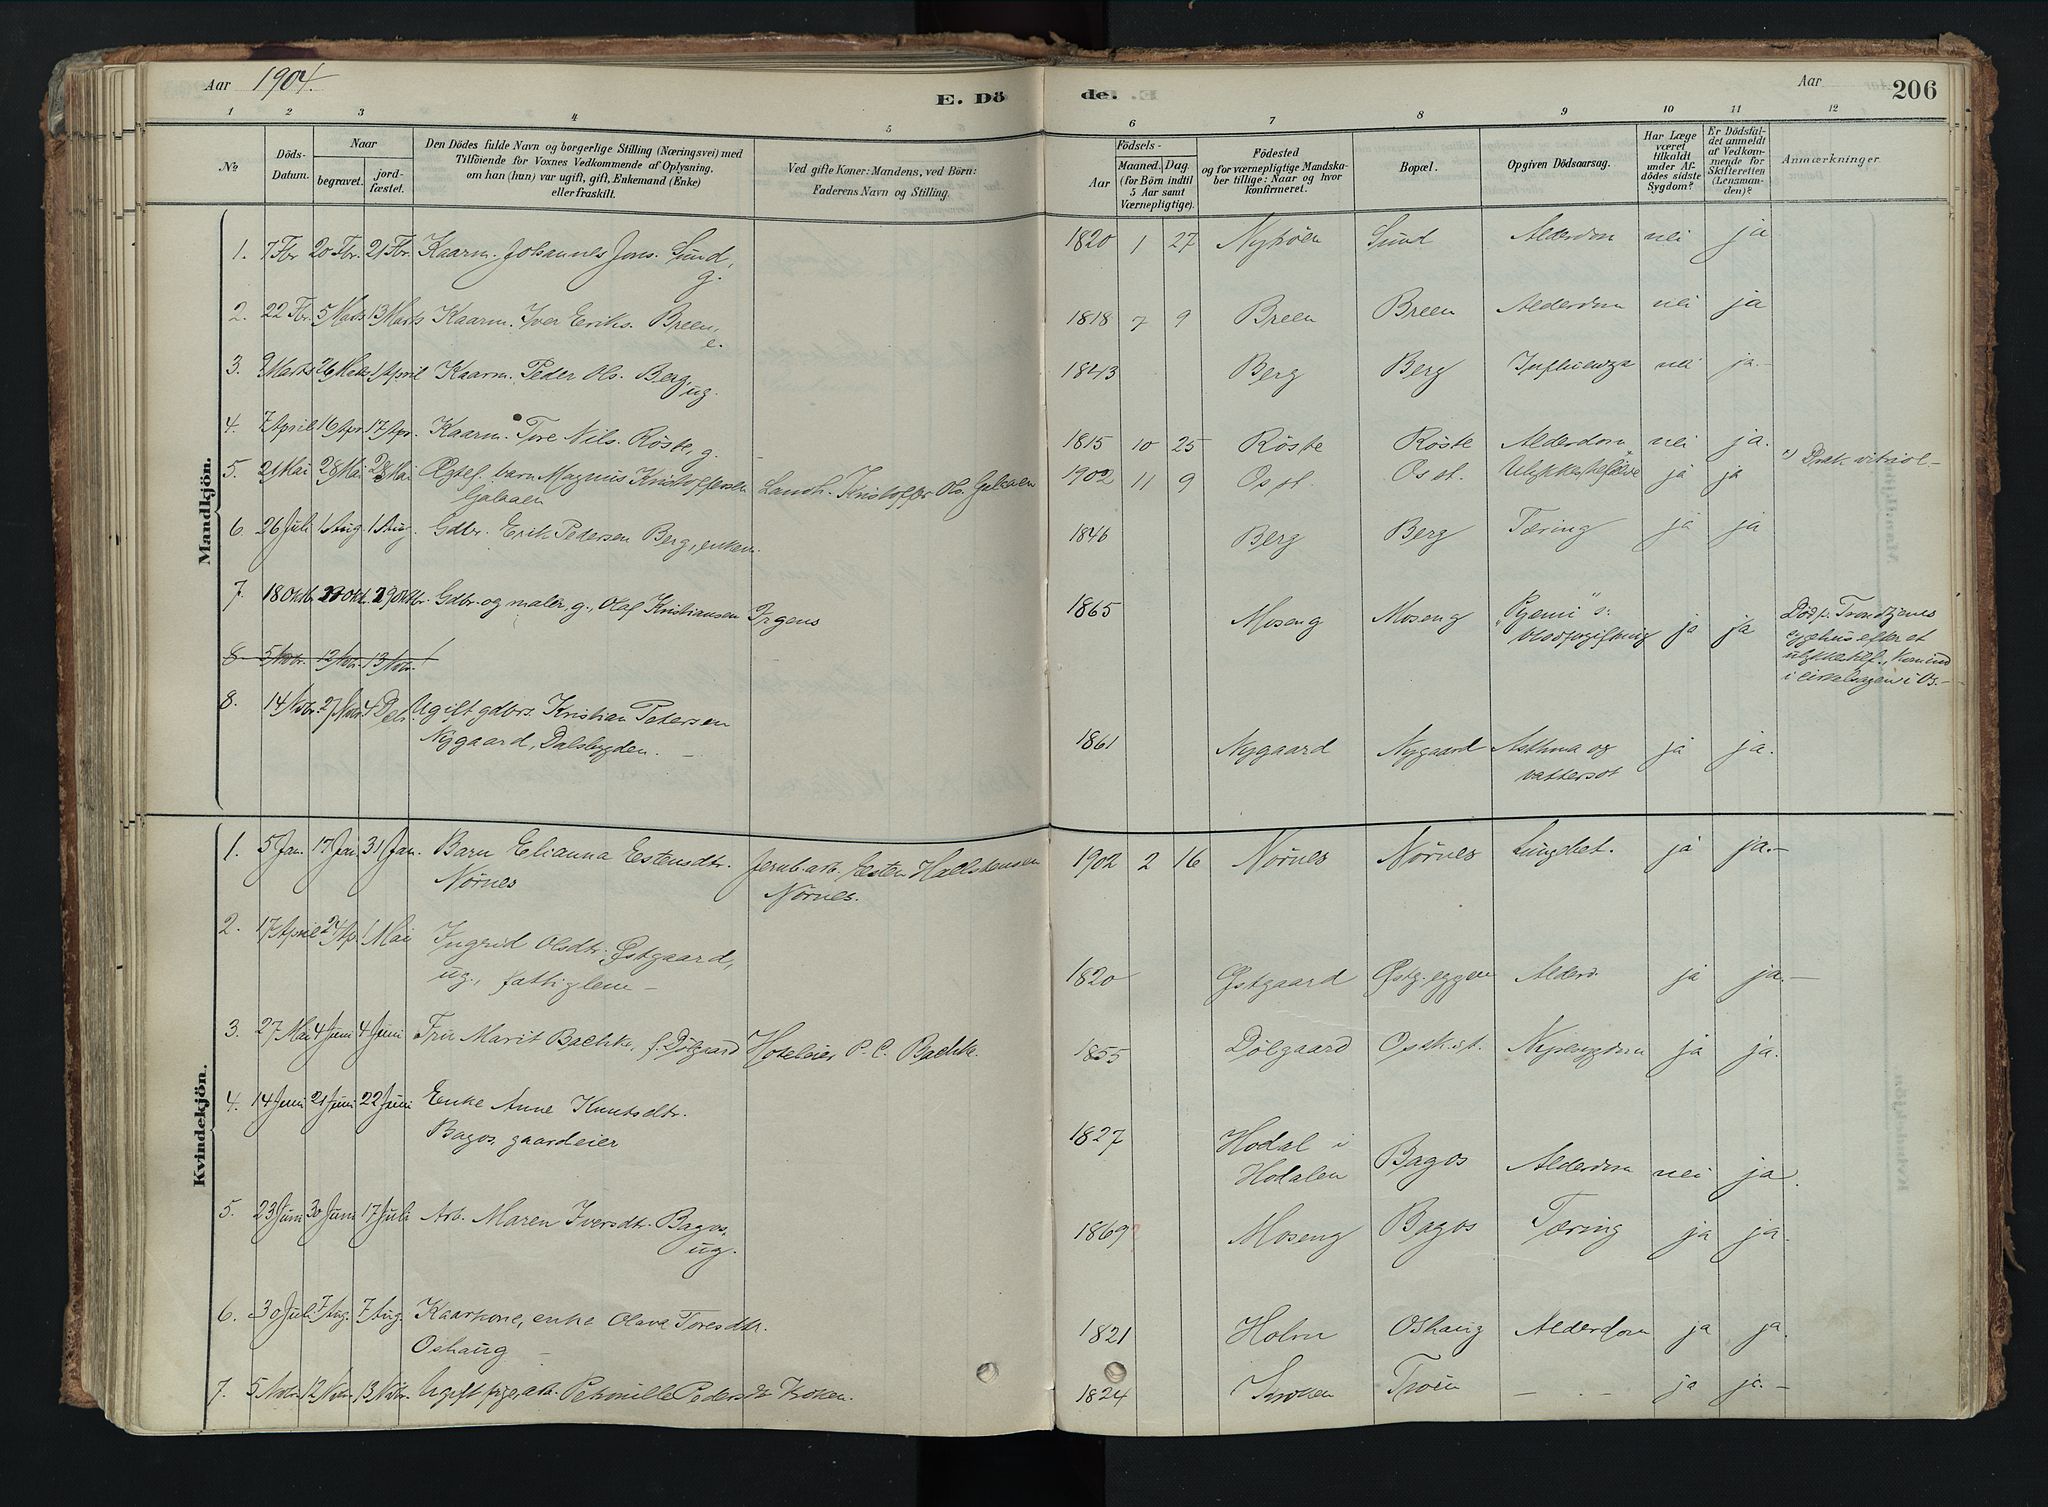 Aar 1904.
E. Dö
de.
Aar
206
1 2 3 4 5 6 7 8 9 10 11 12
No.
Döds-Datum.
Naar
begravet.
jord-fæstet.
Den Dödes fulde Navn og borgerlige Stilling (Næringsvei) med
Tilföiende for Voxnes Vedkommende af Oplysning,
om han (hun) var ugift, gift, Enkemand (Enke)
eller fraskilt.
Ved gifte Koner: Mandens, ved Börn:
Faderens Navn og Stilling.
Födsels-
Aar
Maaned. Dag.
(for Börn indtil
5 Aar samt
Værnepligtige).
Födested
og for værnepligtige Mandska-
ber tillige: Naar og hvor
konfirmeret.
Bopæl.
Opgiven Dödsaarsag.
Har Læge
været
tilkaldt
under Af-
dödes sidste
Sygdom?
Er Dödsfal-
det anmeldt
af Vedkom-
mende for
Skifteretten
(Lensman-
den)?
Anmærkninger.
Mandkjön.
1. 7 Fbr 20 Fbr. 21 Fbr. Kaarm. Johannes Jons. Sund, g. 1820 1 27 Nytrøen Sund Alderdom nei ja
2. 22 Fbr. 5 Mars 13 Marts Kaarm. Iver Eriks. Breen, e. 1818 7 9 Breen Breen Alderdom nei ja
3. 9 Marts 26 Mars 1 April Kaarm. Peder Ols. Berg, ug. 1843 Berg Berg Influenza nei ja.-
4. 7 April 16 Apr. 17 Apr. Kaarm. Tore Nils. Røste, g. 1815 10 25 Røste Røste Alderdom nei ja.
5. 21 Mai 28 Mai 28 Mai Ægtef. barn Magnus Kristoffersen Galaaen Landh. Kristoffer Ols. Galaaen 1902 11 9 Os st. Os st. ja ja Drak vitriol-
6. 26 Juli 1 Aug. 1 Aug. Gdbr. Erik Pedersen Berg, enkem. 1846 Berg Berg Tæring ja ja
7. 18 Oktb. 29 Oktbr. Gdbr. og maler, g., Olaf Kristiansen Irgens 1865 Moseng Moseng "Pyæmi" s: blodforgiftning ja ja Død p. Trondhjems sygehus efter et ulykkestilf., Kom ind i cirkelsagen i Os.-
8. 5 Nov. 12 Nov. 13 Nov.
8. 14 Nvbr. 27 Nvbr 4 Dcb. Ugift gdbrs. Kristian Petersen Nygaard, Dalsbygden. - 1861 Nygaard Nygaard Asthma og vattersot ja ja.
Kvindekjön.
1. 5 Jan. 17 Jan. 31 Jan. Barn Elianna Estensdtr. Nørnes Jernb.arb. Esten Hallstensen Nørnes. 1902 2 16 Nørnes Nørnes Lungebet. ja ja.-
2. 17 April 24 Apr. 1 Mai Ingrid Olsdtr. Østgaard, ug., fattiglem - 1820 Østgaard Østg.eggen Alderd. ja ja.-
3. 27 Mai 4 Juni 4 Juni Fru Marit Bachke, f. Dølgaard Hoteleier P. C. Bachke. 1855 Dølgaard Os st. Nyresygdom ja ja.
4. 14 Juni 21 Juni 22 Juni Enke Anne Knutsdtr. Bagos, gaardeier 1827 Hodal i Hodalen Bagos Alderdom nei ja.
5. 23 Juni 30 Juni 17 Juli Arb. Maren Iversdtr. Bagos, ug. 1869 Moseng Bagos Tæring ja ja.
6. 30 Juli 7 Aug. 7 Aug. Kaarkone, enke Olava Toresdtr. Oshaug - 1821 Holm Oshaug Alderdom ja ja.
7. 5 Nvbr. 12 Nov. 13 Nvbr. Ugift pige, arb. Petronille Pedersdtr. 1824 Troën - - - ja ja.-